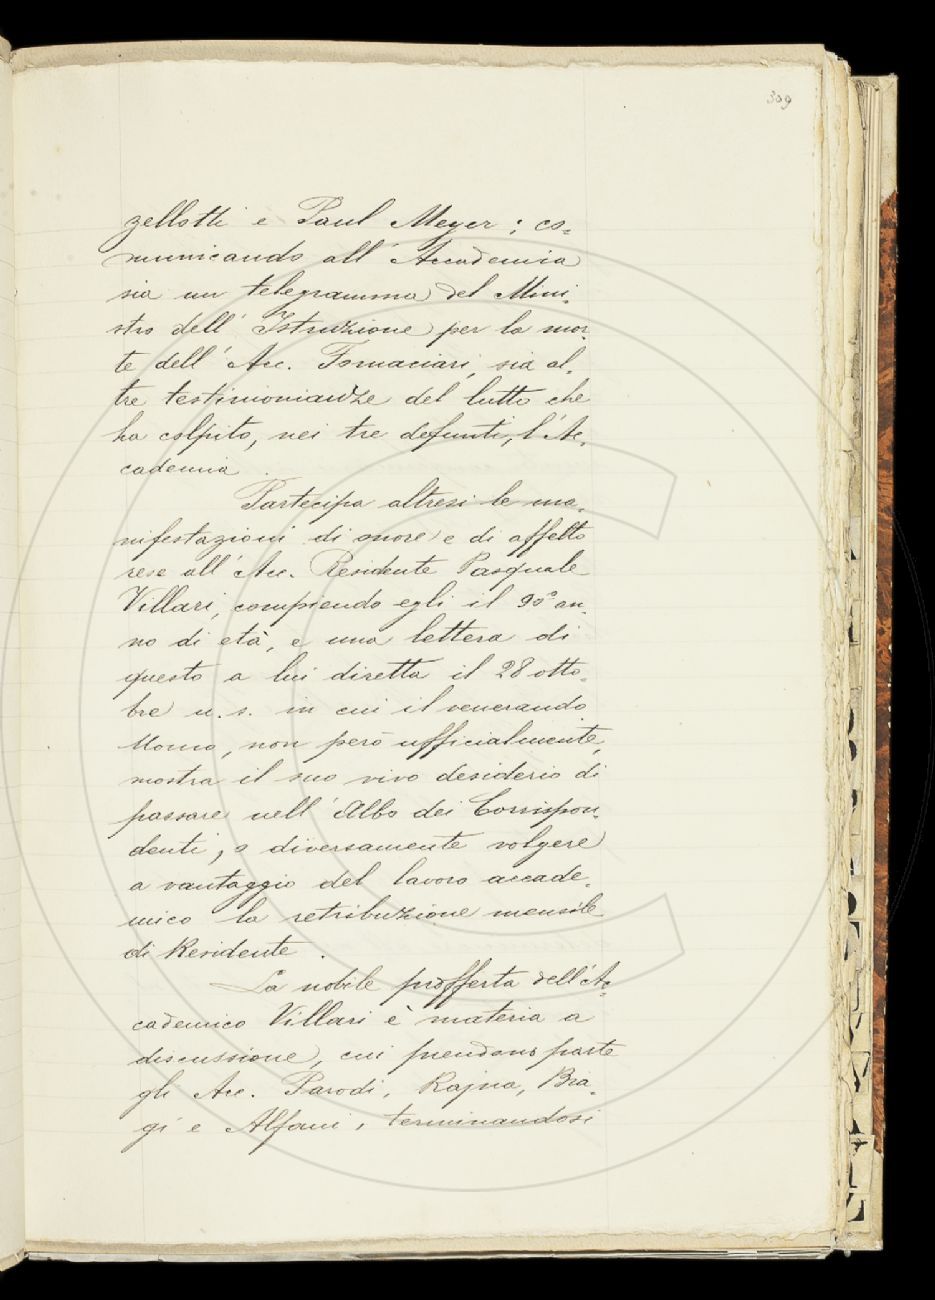 309
zellotti e Paul Meyer; co=
municando all'Accademia
sia un telegramma del Mini=
stro dell'Istruzione per la mor=
te dell'Acc. Fornaciari, sia al=
tre testimonianze del lutto che
ha colpito, nei tre defunti, l'Ac=
cademia.
Partecipa altresì le ma=
nifestazioni di onore e di affetto
rese all'Acc. Residente Pasquale
Villari, compiendo egli il 90° an=
no di età, e una lettera di
questo a lui diretta il 28 otto=
bre u.s. in cui il venerando
Uomo, non però ufficialmente,
mostra il suo vivo desiderio di
passare nell'Albo dei Corrispon=
denti, o diversamente volgere
a vantaggio del lavoro accade=
mico la retribuzione mensile
di Residente.
La nobile profferta dell'Ac=
cademico Villari è materia a
discussione, cui prendono parte
gli Acc. Parodi, Rajna, Bia=
gi e Alfani, terminandosi